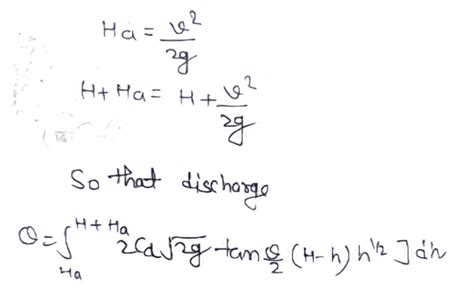 Ha = v²/2g
H + Ha = H + v²/2g
So that discharge
Q = ∫_{Ha}^{H+Ha} 2Cd√2g tan θ/2 (H-h) h^{1/2} ] dh